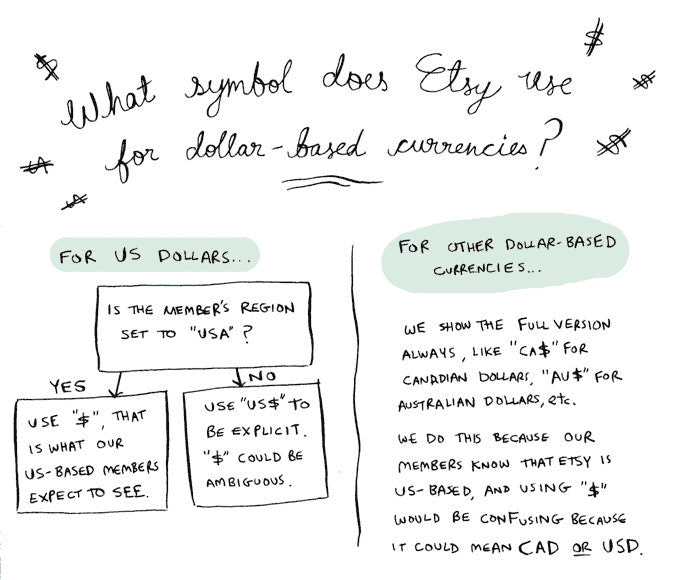 What symbol does Etsy use
for dollar-based currencies?
FOR US DOLLARS...
IS THE MEMBER'S REGION
SET TO "USA"?
YES
USE "$", THAT
IS WHAT OUR
US-BASED MEMBERS
EXPECT TO SEE.
NO
USE "US$" TO
BE EXPLICIT.
"$" COULD BE
AMBIGUOUS.
FOR OTHER DOLLAR-BASED
CURRENCIES...
WE SHOW THE FULL VERSION
ALWAYS, LIKE "CA$" FOR
CANADIAN DOLLARS, "AU$" FOR
AUSTRALIAN DOLLARS, etc.
WE DO THIS BECAUSE OUR
MEMBERS KNOW THAT ETSY IS
US-BASED, AND USING "$"
WOULD BE CONFUSING BECAUSE
IT COULD MEAN CAD OR USD.